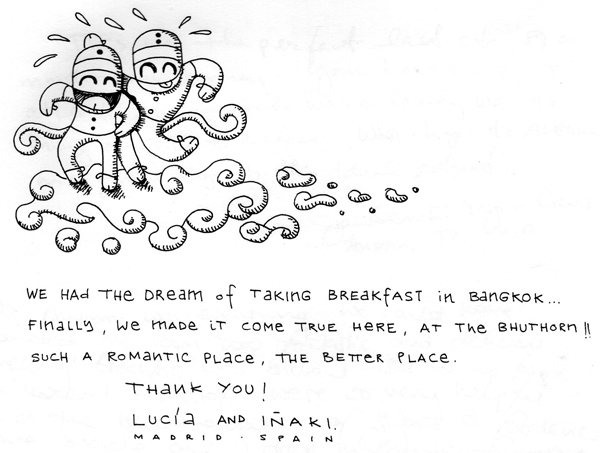 WE HAD THE DREAM of TAKING BREAKfAST in BANGKOK...
FINALLY, WE MADE IT COME TRUE HERE, AT THE BHUTHORN!!
SUCH A ROMANTIC PLACE, THE BETTER PLACE.
THANK YOU!
LUCÍA AND IÑAKI.
MADRID · SPAIN